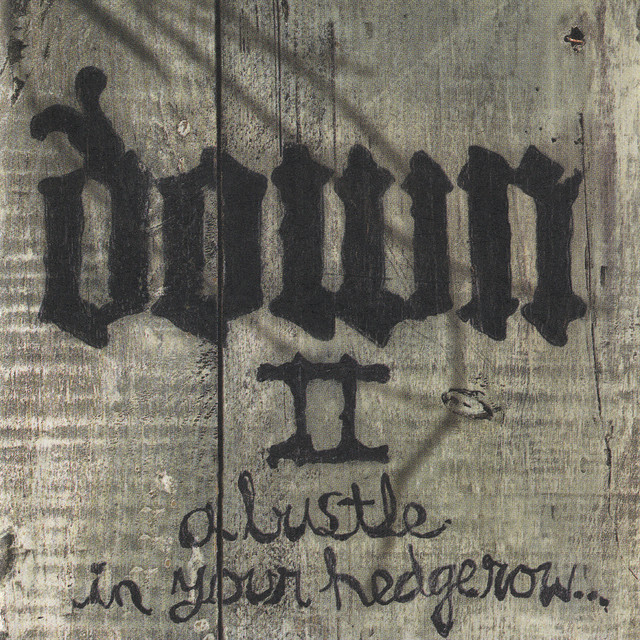 down
II
a bustle
in your hedgerow...